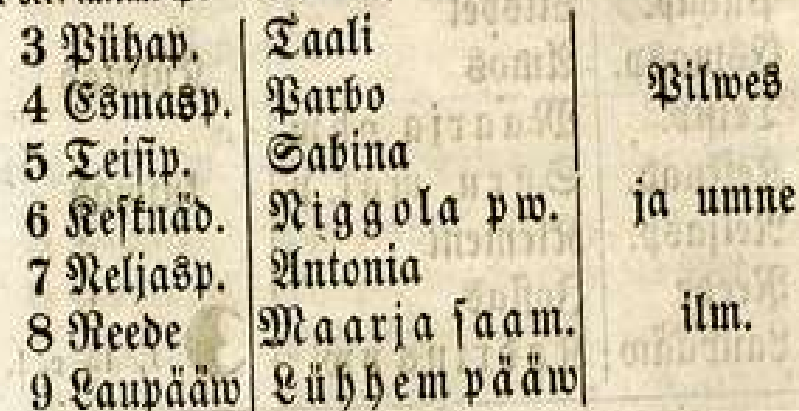 3 Pühap. Taali
4 Esmasp. Parbo
Pilwes
5 Teisip. Sabina
6 Kesknäd. Niggola pw.
ja umne
7 Neljasp. Antonia
8 Reede Maarja saam.
ilm.
9 Laupääw Lühhem pääw